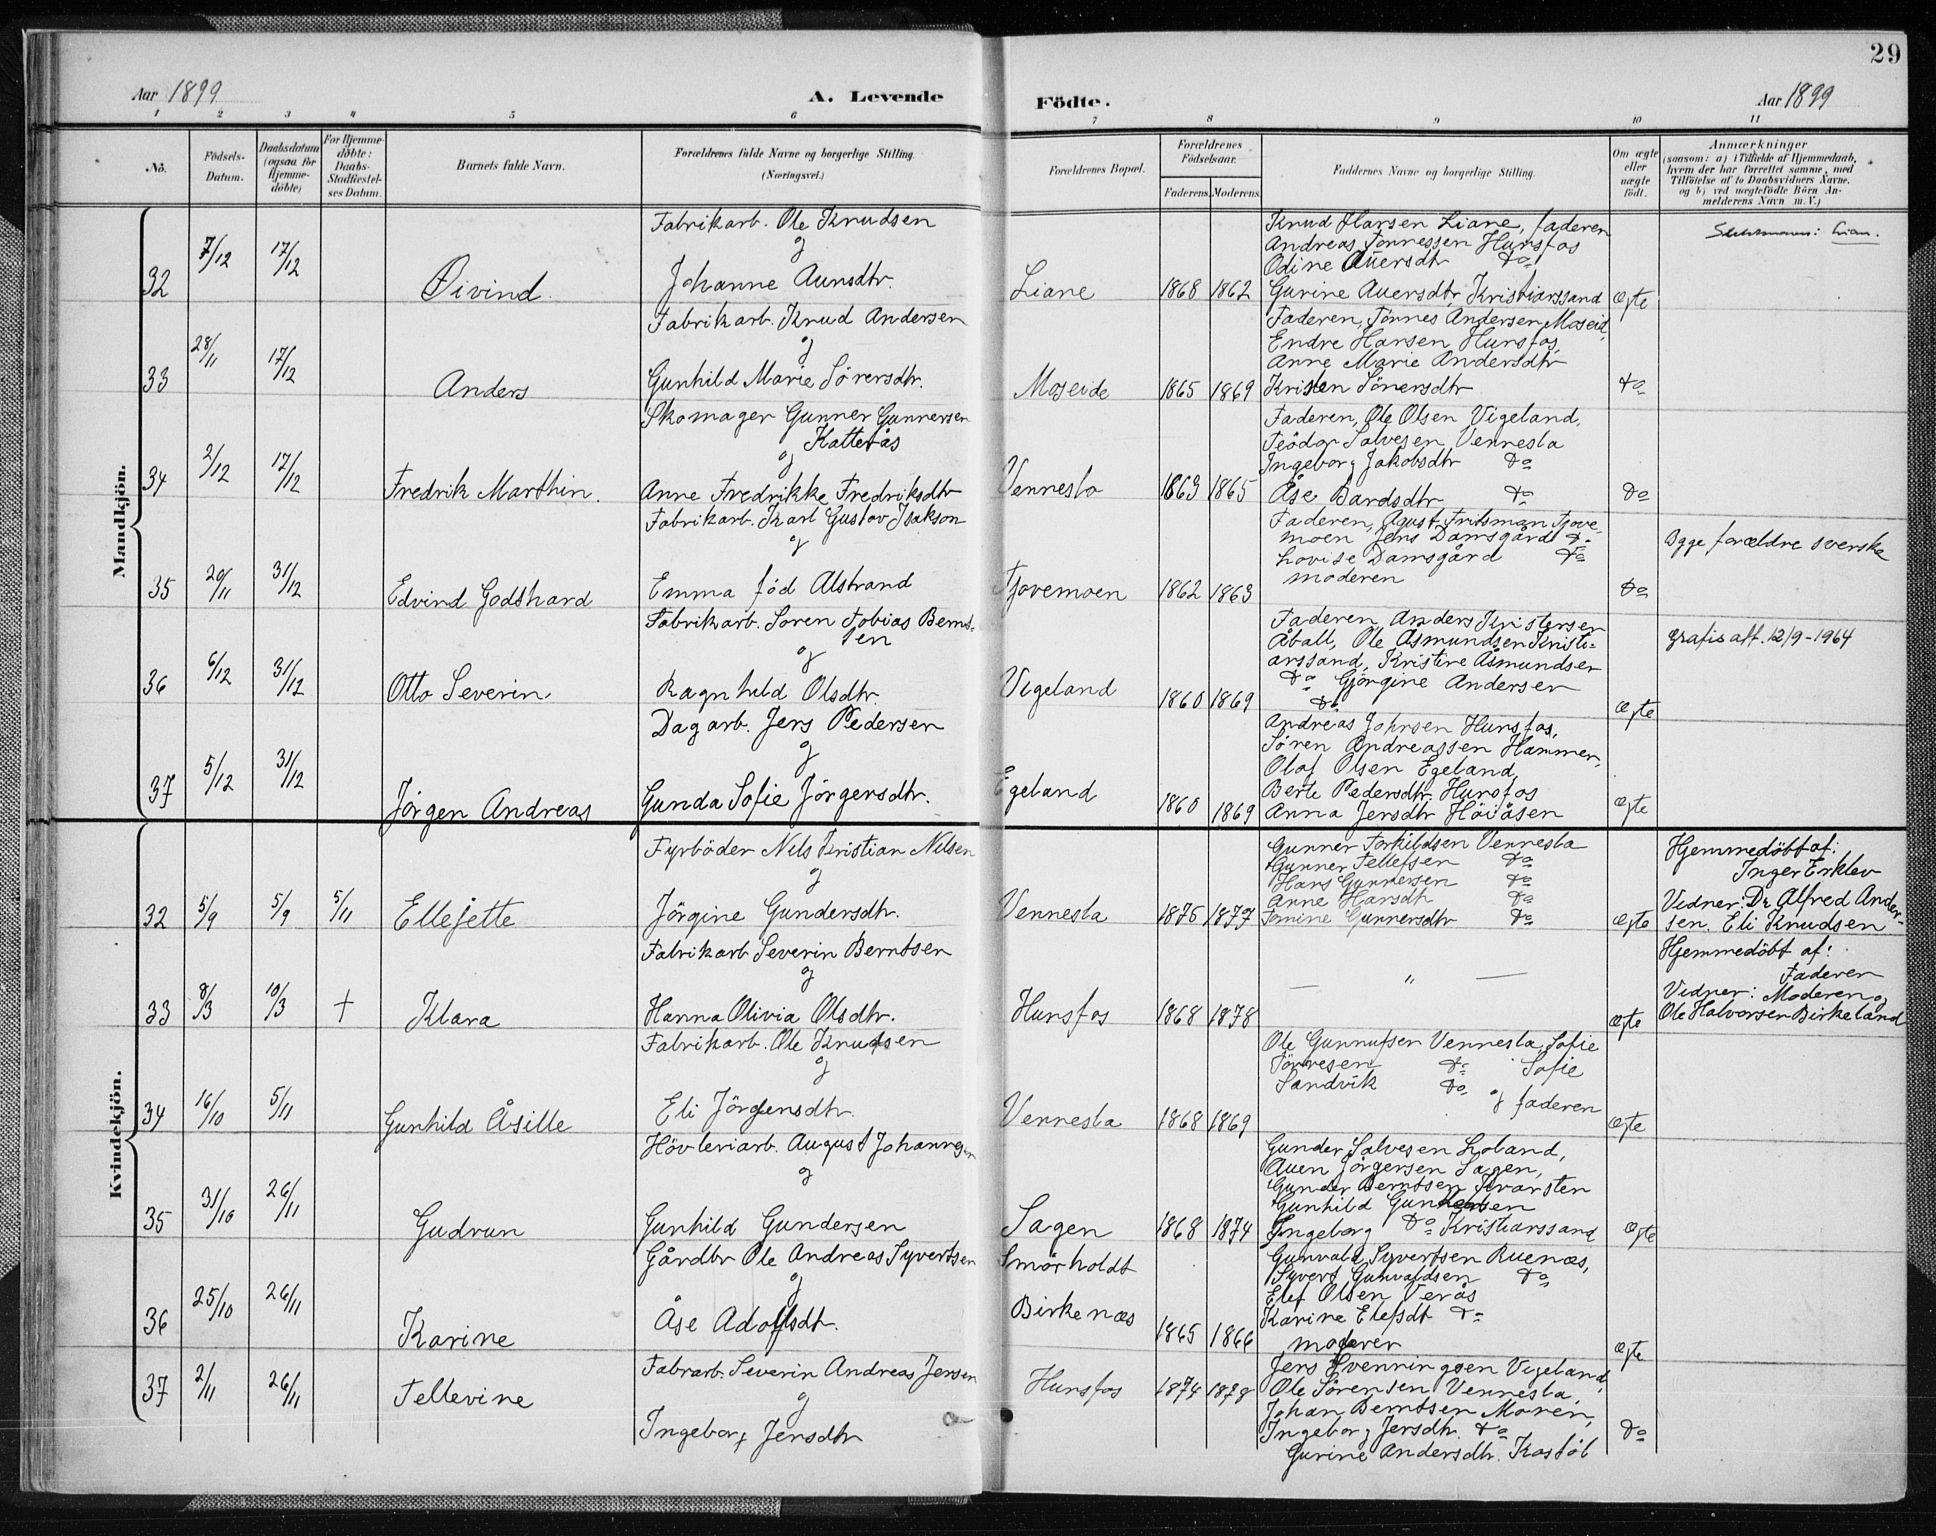 29
Aar 1899
A. Levende
Födte.
Aar 1899
1 2 3 4 5 6 7 8 9 10 11
No.
Födsels-
Datum.
Daabsdatum
(ogsaa for
Hjemme-
döbte)
For Hjemme-
döbte:
Daabs-
Stadfæstel-
ses Datum.
Barnets fulde Navn.
Forældrenes fulde Navne og borgerlige Stilling.
(Næringsvei.)
Forældrenes Bopæl.
Forældrenes
Födselsaar.
Faderens. Moderens.
Faddernes Navne og borgerlige Stilling.
Om ægte
eller
uægte
födt.
Anmærkninger
(saasom: a) i Tilfælde af Hjemmedaab,
hvem der har forrettet samme, med
Tilföielse af to Daabsvidners Navne,
og b) ved uægtefödte Börn An-
melderens Navn m. V.)
Mandkjön.
32
7/12
17/12
Öivind.
Fabrikarb. Ole Knudsen
og
Johanne Aunsdtr.
Liane
1868 1862
Knud Hansen Liane, faderen
Andreas Tönnessen Hunsfos
Odine Auensdtr do
Gurine Auensdtr, Kristianssand
ægte
Slektsnavn: Lian.
33
28/11
17/12
Anders
Fabrikarb. Knud Andersen
og
Gunhild Marie Sörensdtr.
Moseide
1865 1869
Faderen, Tönnes Andersen Moseid,
Endre Hansen Hunsfos,
Anne Marie Andersdtr
Kristen Sörensdtr
do
34
2/12
17/12
Fredrik Marthin.
Skomager Gunner Gunnersen
Katterås
og
Anne Fredrikke Fredriksdtr
Vennesla
1863 1865
Faderen, Ole Olsen Vigeland,
Feodor Salvesen Vennesla
Ingeborg Jakobsdtr do
Åse Bardsdtr do
do
35
20/11
31/12
Edvind Godthard
Fabrikarb. Karl Gustav Isakson
og
Emma föd Alstrand
Fjovemoen
1862 1863
Faderen, Agust Fritsman Fjove-
moen Jens Damsgård do
Lovise Damsgård do
moderen
do
Bgge forældre svenske
36
6/12
31/12
Otto Severin.
Fabrikarb. Soren Tobias Bernt-
sen
og
Ragnhild Olsdtr.
Vigeland
1860 1869
Faderen Anders Kristensen
Åball, Ole Asmundsen Kristi-
anssand, Kristine Åsmundsen
do Gjörgine Andersen
do
ægte
gratis att. 12/9-1964
37
5/12
31/12
Jörgen Andreas
Dagarb. Jens Pedersen
og
Gunda Sofie Jörgensdtr.
Egeland
1860 1869
Andreas Johnsen Hunsfos,
Sören Andreassen Hammer,
Olaf Olsen Egeland,
Berte Pedersdtr. Hunsfos
Anna Jensdtr Höiåsen
ægte
Kvindekjön.
32
5/9
5/9
5/11
Ellejette
Fyrböder Nils Kristian Nilsen
og
Jörgine Gundersdtr.
Vennesla
1876 1877
Gunner Torkildsen Vennesla
Gunner Tellefsen do
Hans Gunnersen do
Anne Hansdtr do
Tomine Gunnersdtr do
ægte
Hjemmedöbt af:
Inger Erklev
Vidner: Dr Alfred Ander-
sen. Eli Knudsen
33
8/3
10/3
+
Klara
Fabrikarb Severin Berntsen
og
Hanna Olivia Olsdtr.
Hunsfos
1868 1878
— " —
ægte
Hjemmedöbt af:
Faderen
Vidner: Moderen og
Ole Halvorsen Birkeland
34
16/10
5/11
Gunhild Åsille
Fabrikarb. Ole Knutsen
og
Eli Jörgensdtr
Vennesla
1868 1869
Ole Gunnufsen Vennesla Sofie
Tönnesen do Sofie
Sandvik do
og faderen
ægte
35
31/10
26/11
Gudrun
Hövleriarb. August Johannesen
og
Gunhild Gundersen
Sagen
1868 1874
Gunder Salvesen Loland,
Auen Jörgensen Sagen,
Gunder Berntsen Kvarsten
Gunhild Gundersen
Ingeborg do Kristianssand
ægte
36
25/10
26/11
Karine
Gårdbr Ole Andreas Syvertsen
og
Åse Adolfsdt.
Smörholdt
Birkenæs
1865 1866
Gunvald Syvertsen Ruenæs,
Syvert Gunvaldsen do
Elef Olsen Verås
Karine Elefsdt do
moderen
ægte
37
2/11
26/11
Tellevine
Fabrarb. Severin Andreas Jensen
og
Ingeborg Jensdtr
Hunsfos
1874 1878
Jens Henningsen Vigeland,
Ole Sörensen Vennesla,
Johan Berntsen Moren,
Ingeborg Jensdtr. do
Gurine Andersdtr. Kostöl
do